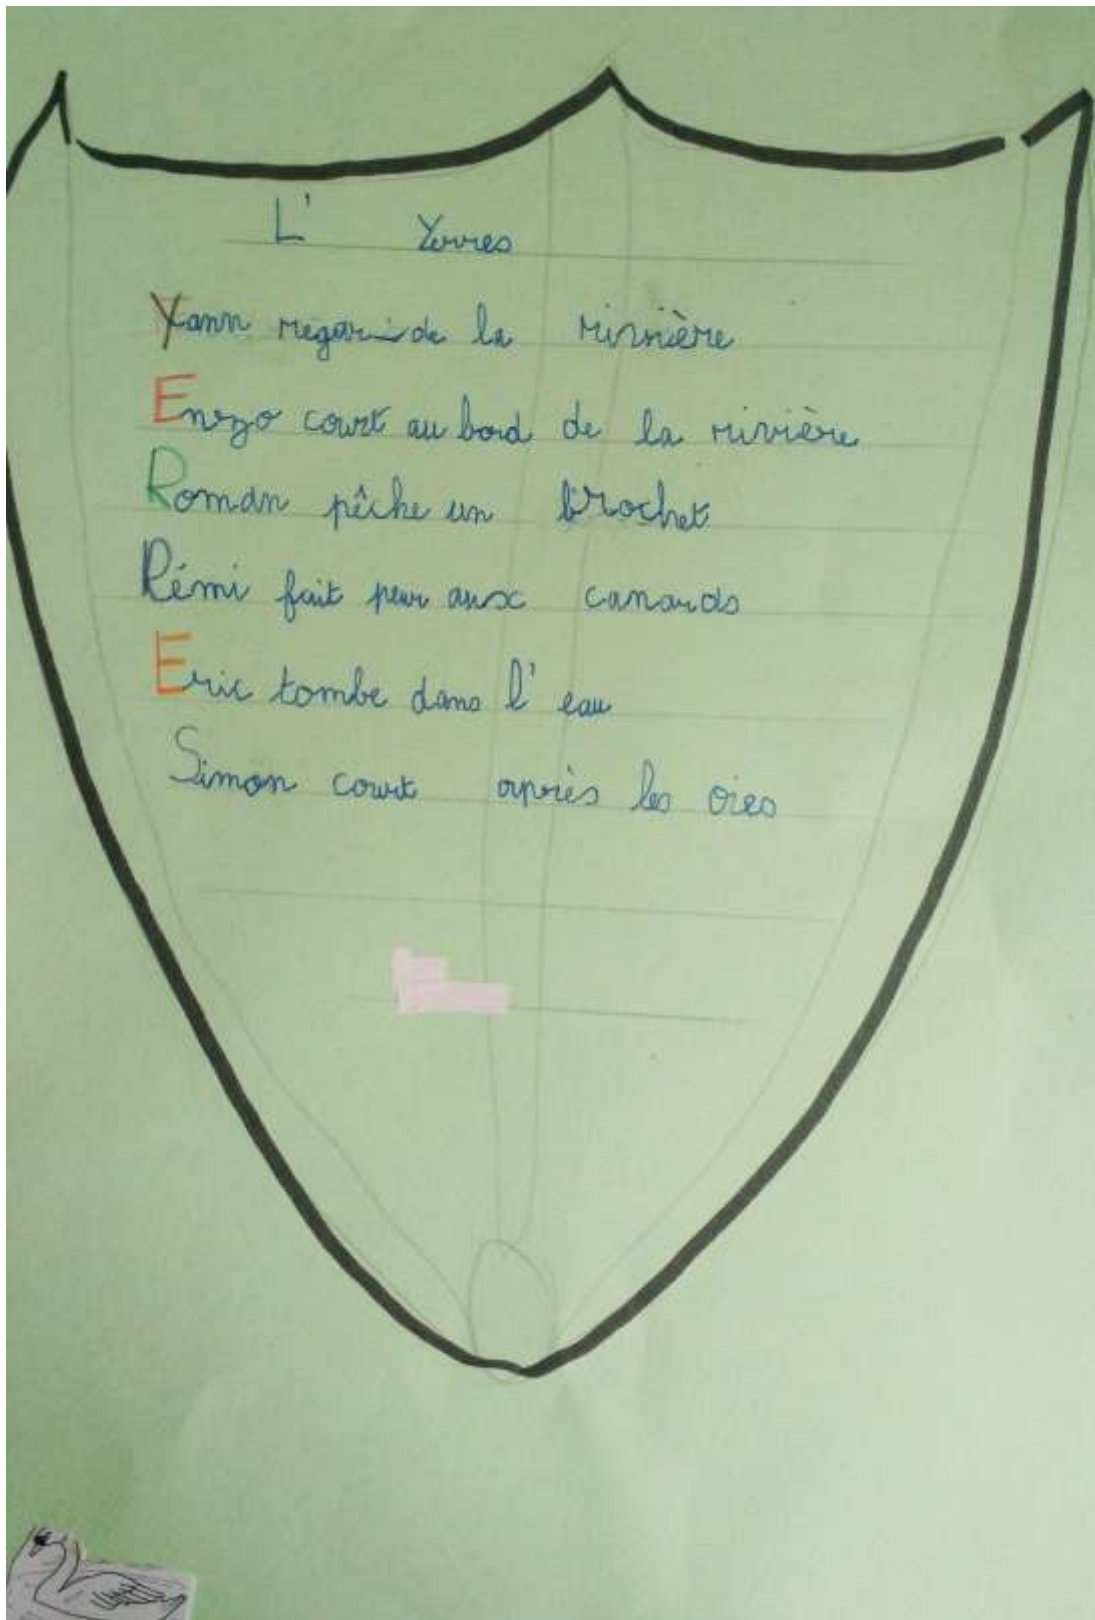 L' Yerres
Yann regarde la rivière
Enzo court au bord de la rivière
Roman pêche un brochet
Rémi fait peur aux canards
Eric tombe dans l'eau
Simon court après les oies